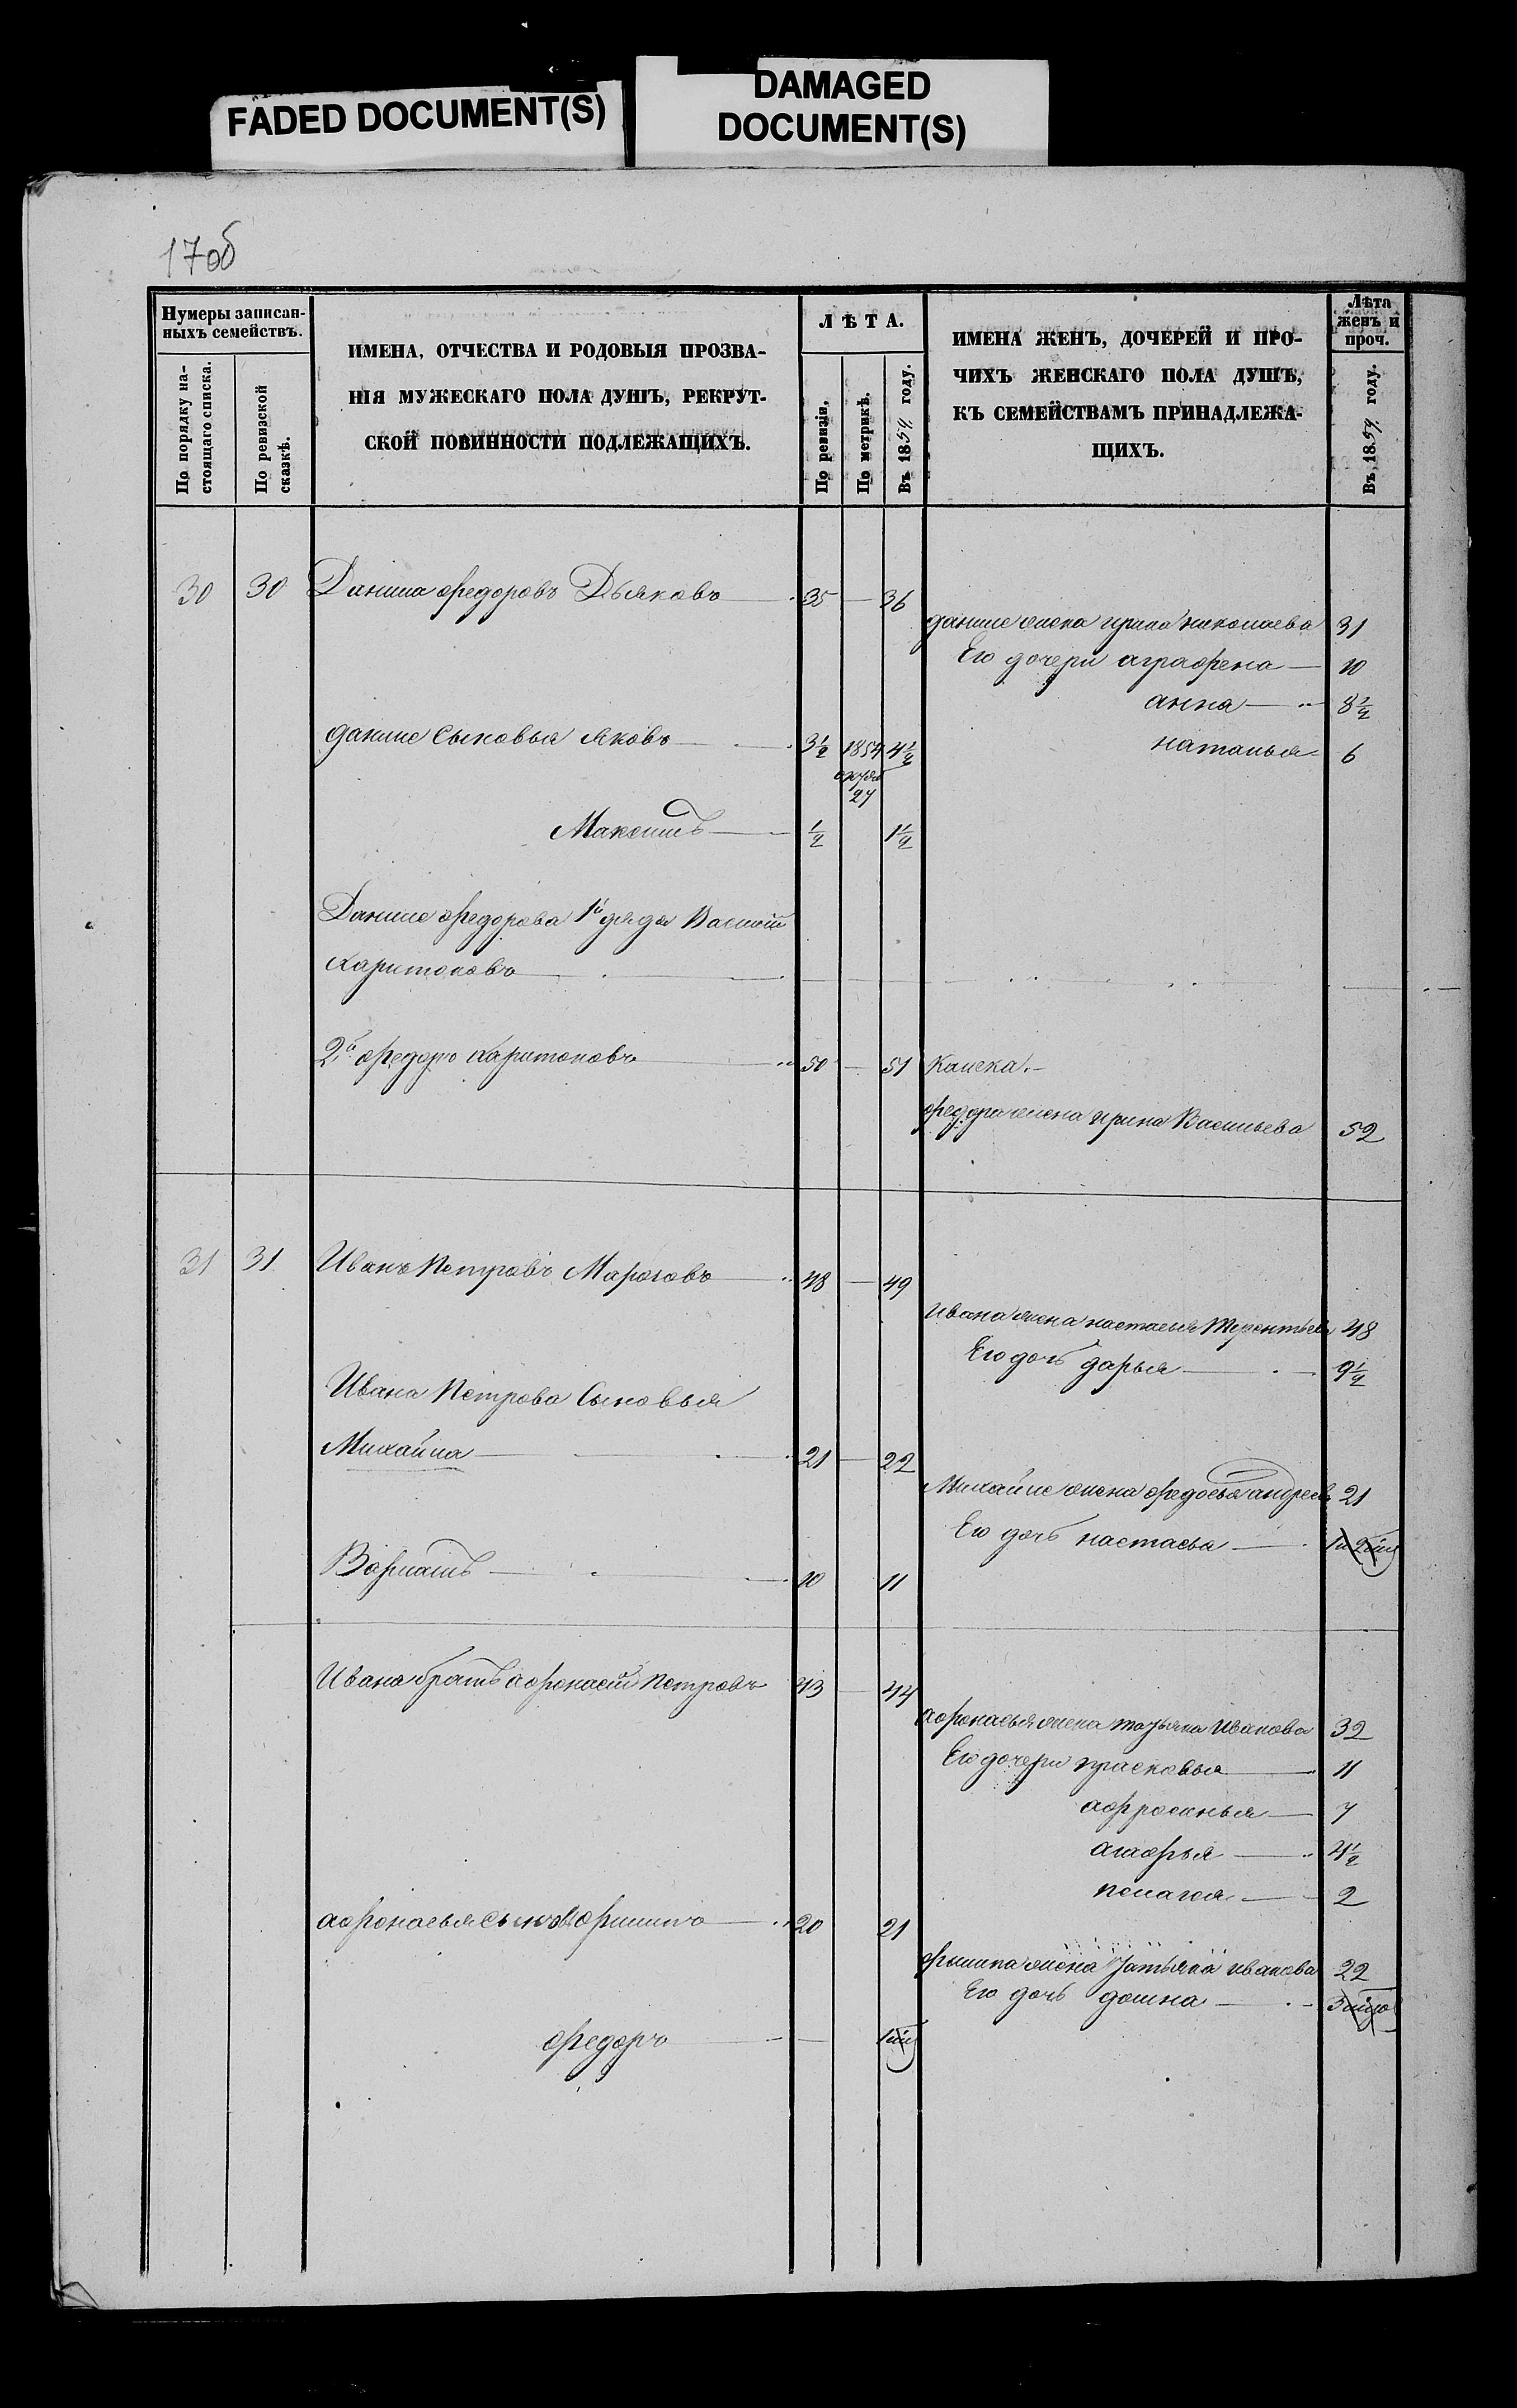 FADED DOCUMENT(S)
DAMAGED
DOCUMENT(S)
17об
Нумеры записан-
ныхъ семействъ.
По порядку на-
стоящаго списка.
По ревизской
сказкѣ.
ИМЕНА, ОТЧЕСТВА И РОДОВЫЯ ПРОЗВА-
НІЯ МУЖЕСКАГО ПОЛА ДУШЪ, РЕКРУТ-
СКОЙ ПОВИННОСТИ ПОДЛЕЖАЩИХЪ.
ЛѢТА.
По ревизіи.
По метрикѣ.
Въ 1859 году.
ИМЕНА ЖЕНЪ, ДОЧЕРЕЙ И ПРО-
ЧИХЪ ЖЕНСКАГО ПОЛА ДУШЪ,
КЪ СЕМЕЙСТВАМЪ ПРИНАДЛЕЖА-
ЩИХЪ.
Лѣта
женъ и
проч.
Въ 1859 году.
30 30 Данила федоровъ Дьяковъ 35 — 36
даниле жена ирина николаева 31
Его дочери аграфена — 10
анна — 8½
даниле Сыновья яковъ 3½ 1854 4½ наталья 6
27
Максимъ ½ 1½
Даниле федорова 1й дядя Василій
харитоновъ
2й федоръ харитоновъ 50 — 51
федора жена ирина Васильева 52
31 31 Иванъ Петровъ Марозовъ 48 — 49
Ивана жена настасья терентьева 48
Его дочь дарья 9½
Ивана Петрова Сыновья
Михайла 21 — 22
Михайле жена федосья андреева 21
Его дочь настасья
10 11
Ивана братъ афонасій Петровъ 43 — 44
афонасья жена татьяна Иванова 32
Его дочери прасковья 11
афросинья 7
4½
пелагея 2
афонасья сыновья филипъ 20 21
филипа жена татьяна иванова 22
Его дочь домна
федоръ